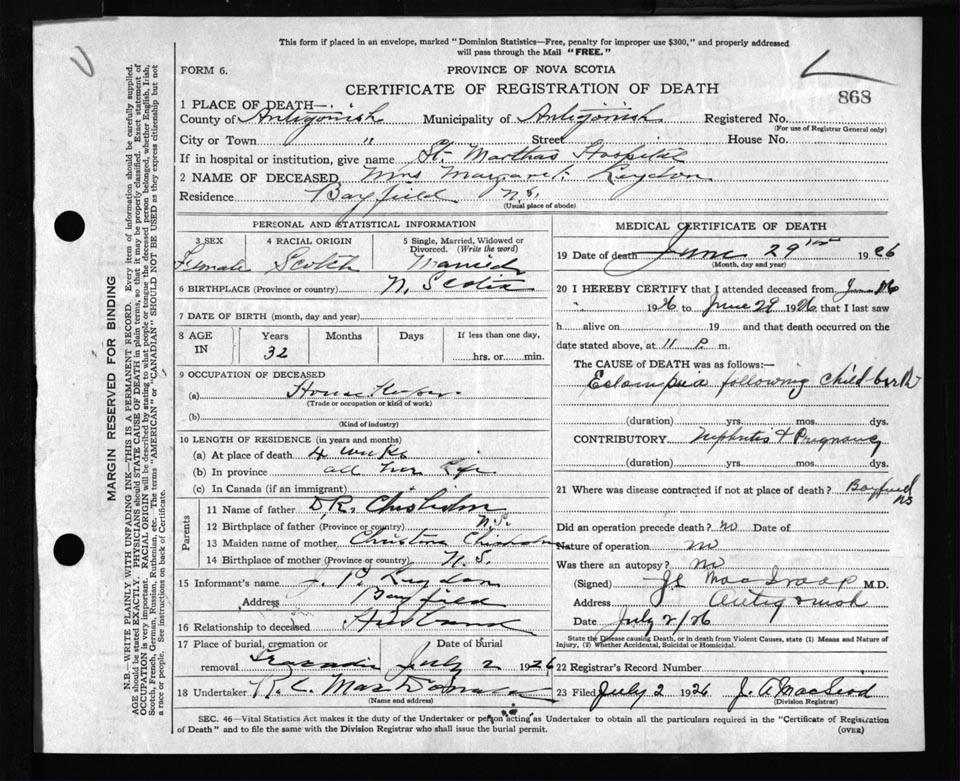 This form if placed in an envelope, marked "Dominion Statistics—Free, penalty for improper use $300," and properly addressed
will pass through the Mail "FREE."
FORM 6.
PROVINCE OF NOVA SCOTIA
CERTIFICATE OF REGISTRATION OF DEATH
868
1 PLACE OF DEATH—
County of Antigonish Municipality of Antigonish Registered No.
(For use of Registrar General only)
City or Town " Street House No.
If in hospital or institution, give name St. Marthas Hospital
2 NAME OF DECEASED Mrs Margaret Leydon
Residence Bayfield N.S.
(Usual place of abode)
PERSONAL AND STATISTICAL INFORMATION
3 SEX 4 RACIAL ORIGIN 5 Single, Married, Widowed or Divorced. (Write the word)
Female Scotch Married
6 BIRTHPLACE (Province or country) N. Scotia
7 DATE OF BIRTH (month, day and year)
8 AGE IN Years Months Days If less than one day,
32 hrs. or min.
9 OCCUPATION OF DECEASED
(a) House Keeper
(Trade or occupation or kind of work)
(b)
(Kind of industry)
10 LENGTH OF RESIDENCE (in years and months)
(a) At place of death 4 weeks
(b) In province all her life
(c) In Canada (if an immigrant)
Parents
11 Name of father D.R. Chisholm
12 Birthplace of father (Province or country) N.S.
13 Maiden name of mother Christina Chisholm
14 Birthplace of mother (Province or country) N.S.
15 Informant's name J. P. Leydon
Address Bayfield
16 Relationship to deceased Husband
17 Place of burial, cremation or Date of burial
removal Tracadie July 2 1926
18 Undertaker R. C. MacDonald
(Name and address)
MEDICAL CERTIFICATE OF DEATH
19 Date of death June 29 1926
(Month, day and year)
20 I HEREBY CERTIFY that I attended deceased from
1926 to June 29 1926 that I last saw
h alive on 19 and that death occurred on the
date stated above, at 11 P. m.
The CAUSE OF DEATH was as follows:—
Eclampsia following child birth
(duration) yrs. mos. dys.
CONTRIBUTORY Nephritis & Pregnancy
(duration) yrs. mos. dys.
21 Where was disease contracted if not at place of death? Bayfield NS
Did an operation precede death? no Date of
Nature of operation no
Was there an autopsy? no
(Signed) M.D.
Address Antigonish
Date July 2/26
State the Disease causing Death, or in death from Violent Causes, state (1) Means and Nature of
Injury, (2) Whether Accidental, Suicidal or Homicidal.
22 Registrar's Record Number
23 Filed July 2 1926 J. A. MacLeod
(Division Registrar)
SEC. 46—Vital Statistics Act makes it the duty of the Undertaker or person acting as Undertaker to obtain all the particulars required in the "Certificate of Registration
of Death" and to file the same with the Division Registrar who shall issue the burial permit.
(OVER)
MARGIN RESERVED FOR BINDING
N.B.—WRITE PLAINLY WITH UNFADING INK—THIS IS A PERMANENT RECORD. Every item of information should be carefully supplied.
AGE should be stated EXACTLY. PHYSICIANS should STATE CAUSE OF DEATH in plain terms, so that it may be properly classified. Exact statement of
OCCUPATION is very important. RACIAL ORIGIN will be described by stating to what people or tongue the deceased person belonged, whether English, Irish,
Scotch, French, German, Russian, Ruthenian, etc. The terms "AMERICAN" or "CANADIAN" SHOULD NOT BE USED as they express citizenship but not
a race or people. See instructions on back of Certificate.